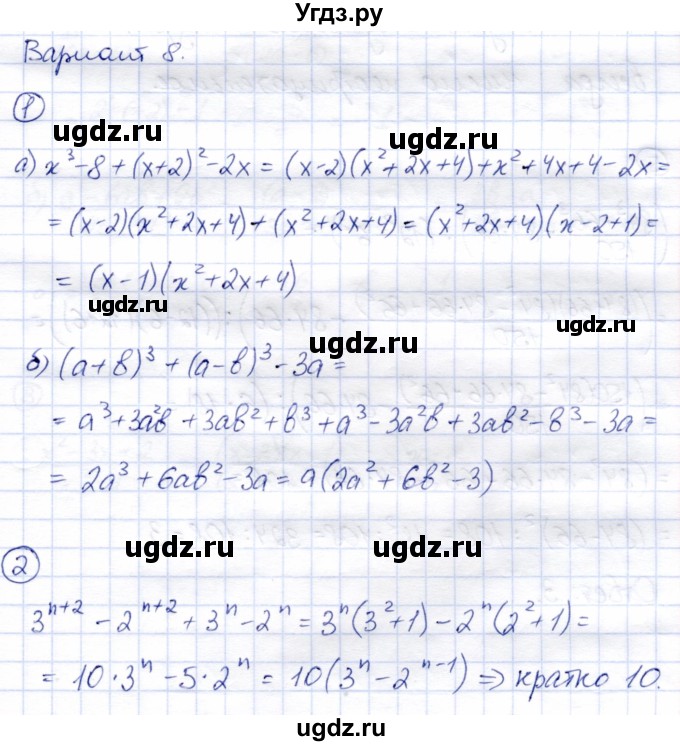 Угдз.ру
Вариант 8.
1
ugdz.ru ugdz.ru
а) x³-8+(x+2)²-2x = (x-2)(x²+2x+4)+x²+4x+4-2x=
= (x-2)(x²+2x+4)+(x²+2x+4)=(x²+2x+4)(x-2+1)=
ugdz.ru
= (x-1)(x²+2x+4)
ugdz.ru
ugdz.ru
ugdz.ru
б) (a+b)³+(a-b)³-3a=
= a³+3a²b+3ab²+b³+a³-3a²b+3ab²-b³-3a=
= 2a³+6ab²-3a=a(2a²+6b²-3)
ugdz.ru ugdz.ru
2
3ⁿ⁺²-2ⁿ⁺²+3ⁿ-2ⁿ=3ⁿ(3²+1)-2ⁿ(2²+1)=
= 10·3ⁿ-5·2ⁿ=10(3ⁿ-2ⁿ⁻¹) ⇒ кратно 10.
ugdz.ru ugdz.ru